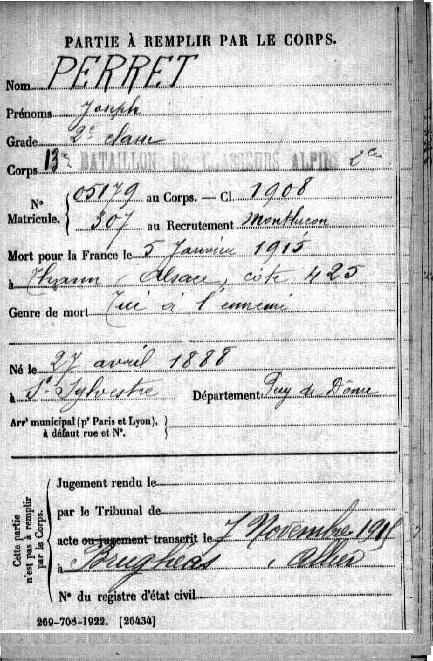 PARTIE À REMPLIR PAR LE CORPS.
Nom PERRET
Prénoms Joseph
Grade 2e classe
Corps 13e BATAILLON DE CHASSEURS ALPINS 2 Cie
N° Matricule. { 05179 au Corps. — Cl. 1908
307 au Recrutement Montluçon
Mort pour la France le 5 Janvier 1915
à Thann, Alsace, côte 425
Genre de mort Tué à l'ennemi
Né le 27 avril 1888
à St Sylvestre Département Puy de Dôme
Arrt municipal (pr Paris et Lyon), }
à défaut rue et N°. }
Cette partie n'est pas à remplir par le Corps.
Jugement rendu le
par le Tribunal de
acte ou jugement transcrit le 7 Novembre 1915
à Brugheas, Allier
N° du registre d'état civil
269-708-1922. [26434]